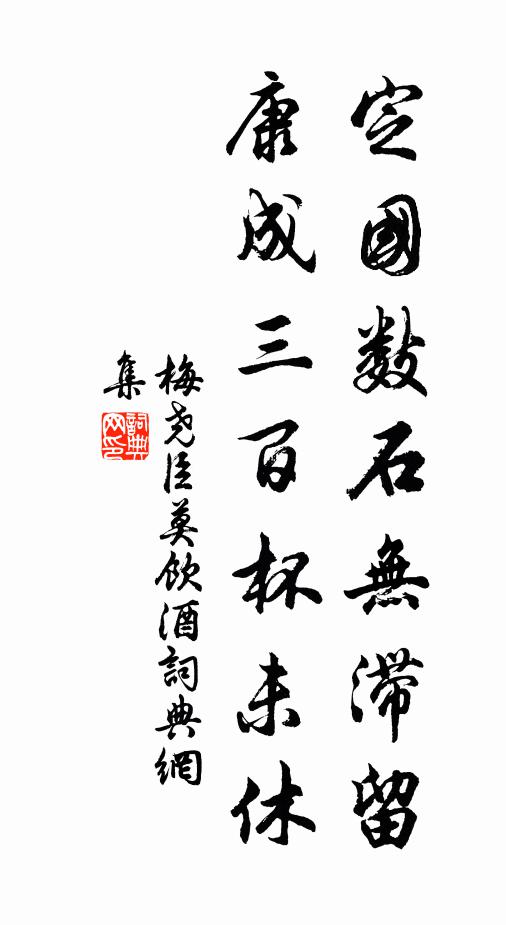 定國數石無滯留
康成三百杯未休
梅堯臣莫飲酒詞典網
集
詞典
网印